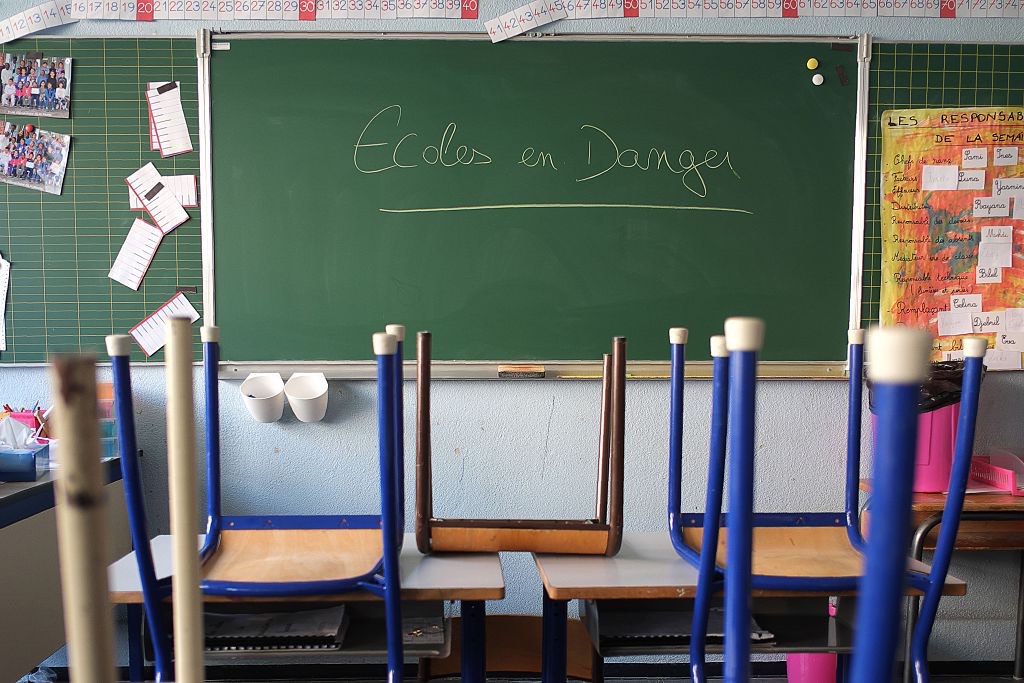 11 12 13 14 15 16 17 18 19 20 21 22 23 24 25 26 27 28 29 30 31 32 33 34 35 36 37 38 39 40
41 42 43 44 45 46 47 48 49 50 51 52 53 54 55 56 57 58 59 60 61 62 63 64 65 66 67 68 69 70 71 72 73
Ecoles en Danger
LES RESPONSAB
DE LA SEMA
- Chefs de rang
Tami
Ines
Luna
Yasmin
- Distribut
Rayana
- Responsable des devoirs
- Responsable des absents
- Médiateur de classe
Bilel
- Responsable technique
Celina
- Remplaçant
Djebril